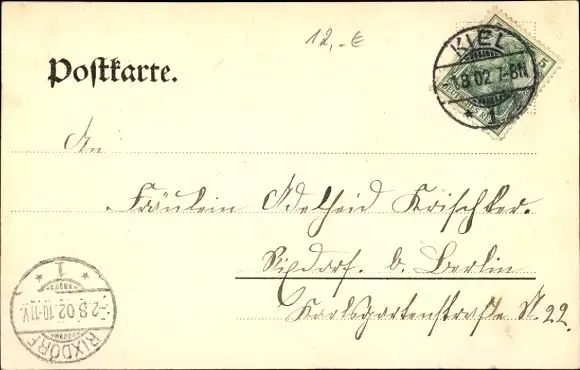 12,-€
Postkarte.
KIEL
1.8.02.7-8N
DEUTSCHES REICH
5
* 1
An
Fräulein Adelheid Krischker.
Rixdorf. b. Berlin
Karlsgartenstraße N. 22.
RIXDORF
-2.8.02.10-11V.
* 1 *